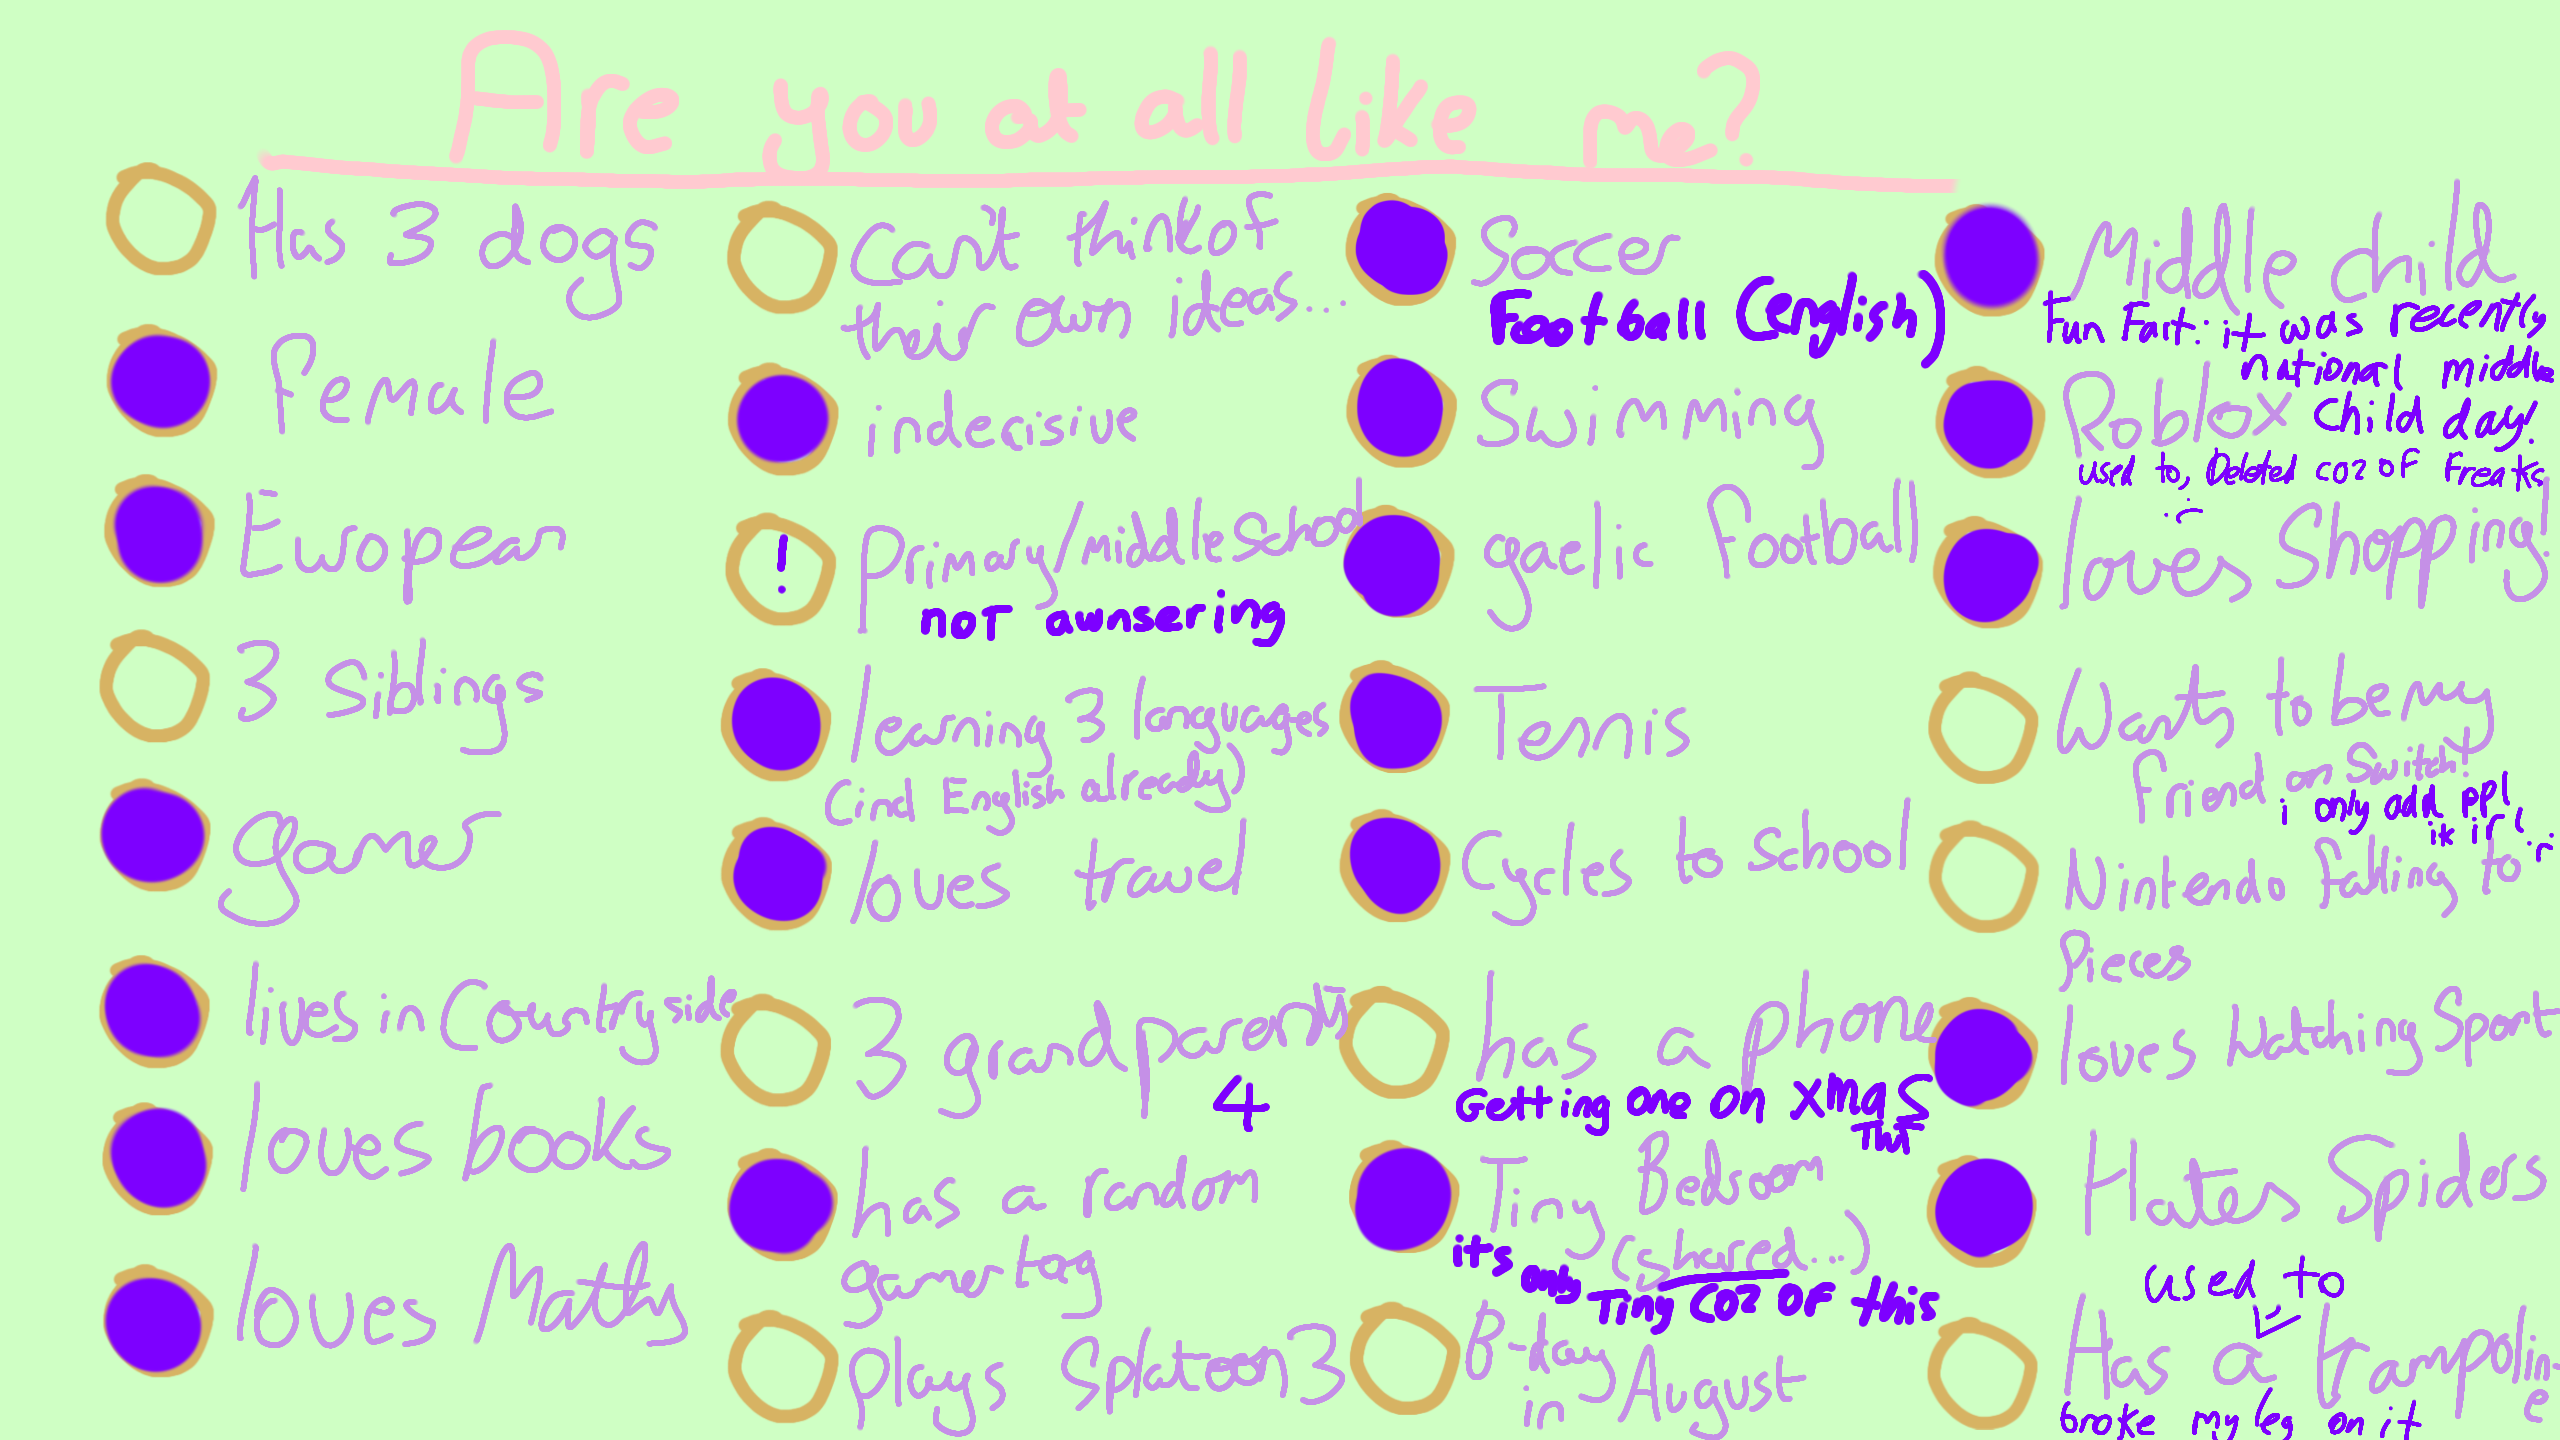 Are you at all like me?
Has 3 dogs
female
European
3 Siblings
gamer
lives in Countryside
loves books
loves Maths
Can't think of
their own ideas...
indecisive
!
Primary/middle School
noT awnsering
learning 3 languages
(incl English already)
loves travel
3 grandparents
4
has a random
gamertag
Plays Splatoon 3
Soccer
FootBall (english)
Swimming
gaelic football
Tennis
Cycles to school
has a phone
Getting one on xmas
Tiny Bedroom
(shared...)
its only Tiny coz of this
B-day
in August
Middle child
Fun Fart: it was recently
national middle
child day!
Roblox
used to, Deleted coz of Freaks
:(
loves Shopping!
Wants to be my
friend on Switch!
i only add ppl
ik irl :(
Nintendo falling to
Pieces
loves Watching Sport
Hates Spiders
used to
Has a trampolin-
e
broke my leg on it